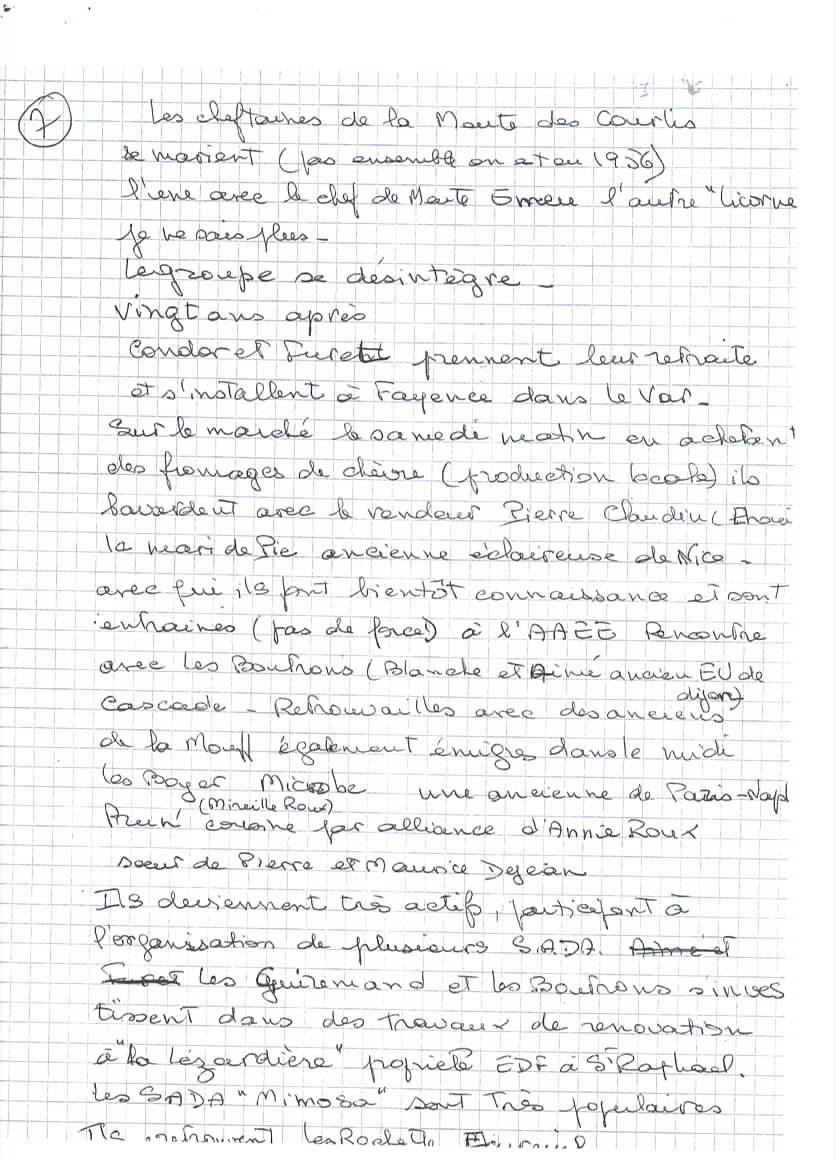 7
Les cheftaines de la Meute des Courlis
se marient (pas ensemble on est en 1956)
l'une avec le chef de Meute l'autre "Licorne
je ne sais plus -
Le groupe se désintègre -
Vingt ans après
Condor et Furet prennent leur retraite
et s'installent à Fayence dans le Var -
Sur le marché le samedi matin en achetant
des fromages de chèvre (production locale) ils
bavardent avec le vendeur Pierre Claudin (
le mari de Pie ancienne éclaireuse de Nice -
avec qui ils font bientôt connaissance et sont
entrainés (pas de force!) à l'AAEE Rencontre
avec les Boutrons (Blanche et Aimé ancien EU de
dijon)
Cascade - Retrouvailles avec des anciens
de la Mouff également émigrés dans le midi
les Boyer Microbe une ancienne de Paris-
(Mireille Roux)
cousine par alliance d'Annie Roux
soeur de Pierre et Maurice Dejean
Ils deviennent très actifs, participent à
l'organisation de plusieurs S.A.D.A. Aimé et
Furet les Guiremand et les Boutrons s'inves
tissent dans des travaux de renovation
à "la Lézardière" propriété EDF à St Raphael.
Les SADA "Mimosa" sont très populaires